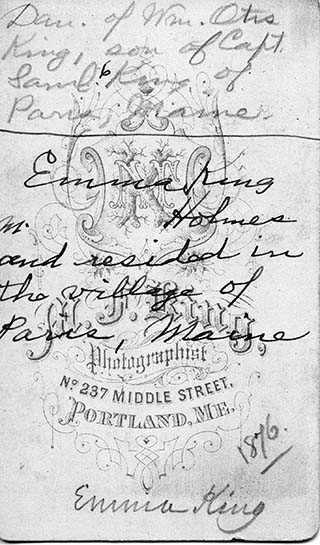 Dau. of Wm. Otis
King, son of Capt.
Saml. King of
Paris, Maine.
Emma King
m. Holmes
and resided in
the village of
Paris, Maine
King,
Photographist
No. 237 MIDDLE STREET,
PORTLAND, ME.
1876.
Emma King